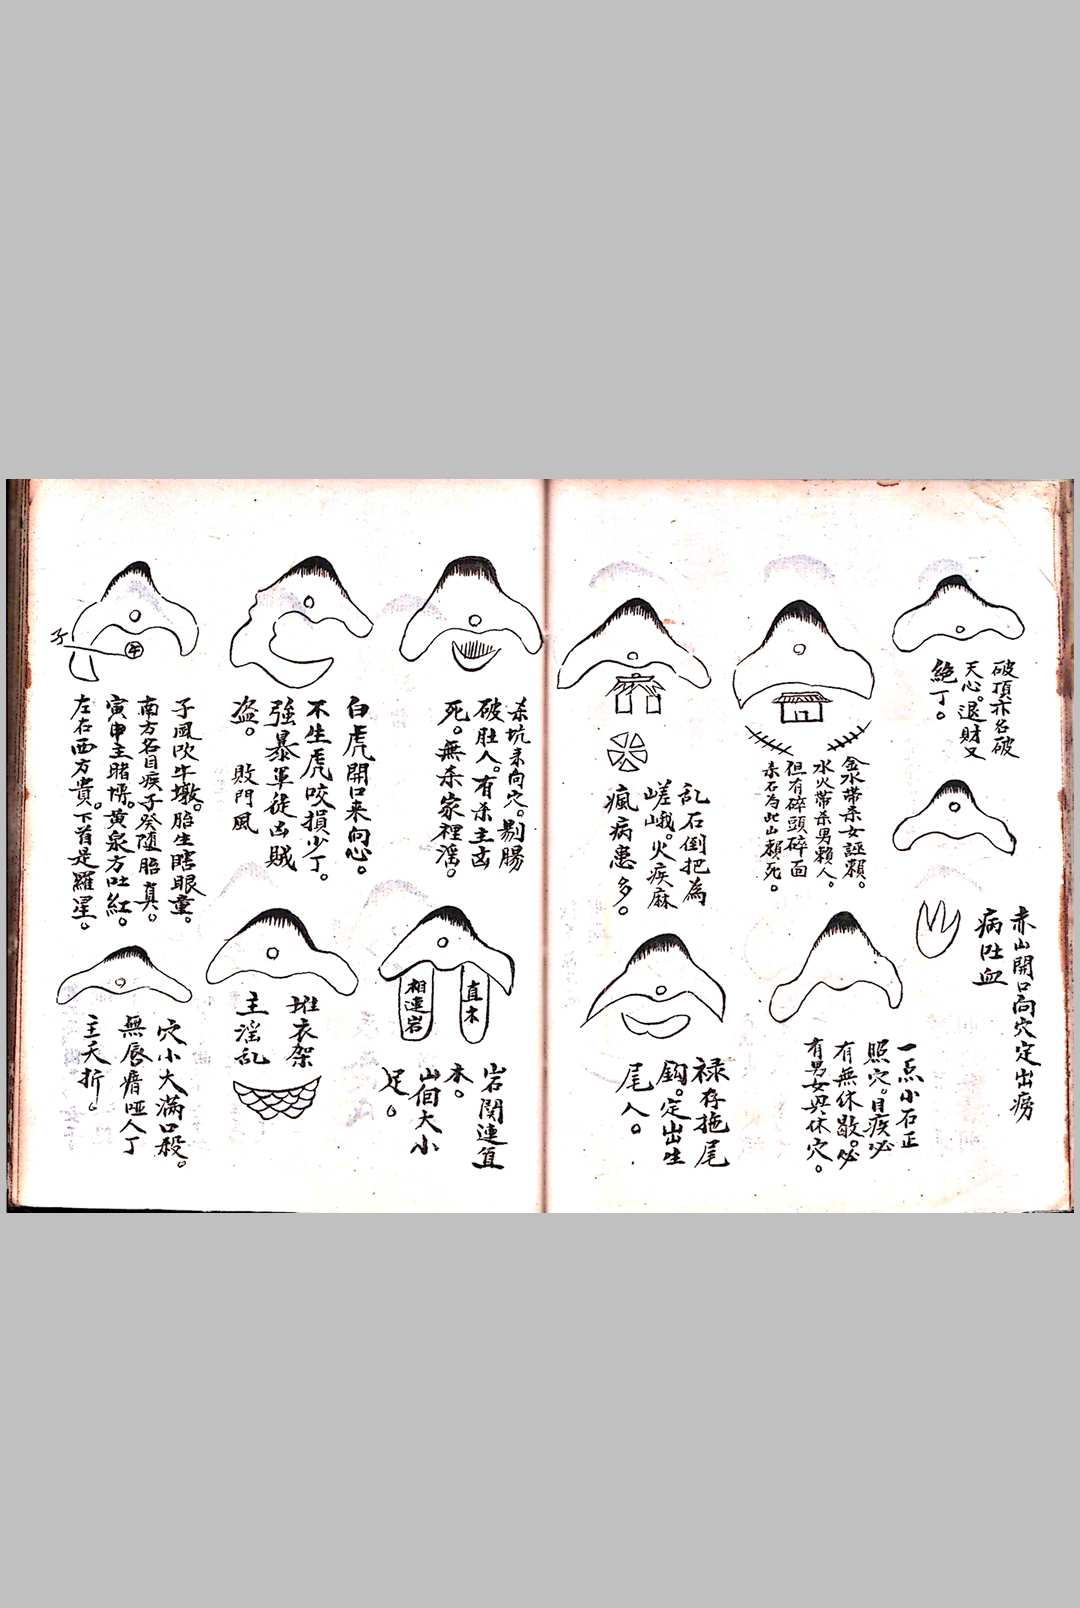 破頂亦名破
天心。退財又
絶丁。
赤山開口向穴定出癆
病吐血
金水帶杀女誣賴。
水火帶杀男賴人。
但有碎頭碎面
赤石為此山賴死。
一点小石正
照穴。目疾必
有無休歇。必
有男女與休穴。
乱石倒把為
嵯峨。火疾麻
瘋病患多。
禄存拖尾
鈎。定出生
尾人。
杀坑来向穴。剔腸
破肚人。有杀主凶
死。無杀家裡淫。
直木
相連岩
岩関連直
木。
山佰大小
足。
白虎開口来向心。
不生虎咬損少丁。
強暴軍徒凶賊
盗。 敗門風
堆衣架
主淫乱
子
午
子風吹牛墩。胎生瞎眼童。
南方名目疾子癸隨胎真。
寅申主賭博。黄泉方吐紅。
左右西方貴。下首是羅星。
穴小大滿口殺。
無唇瘖啞人丁
主夭折。